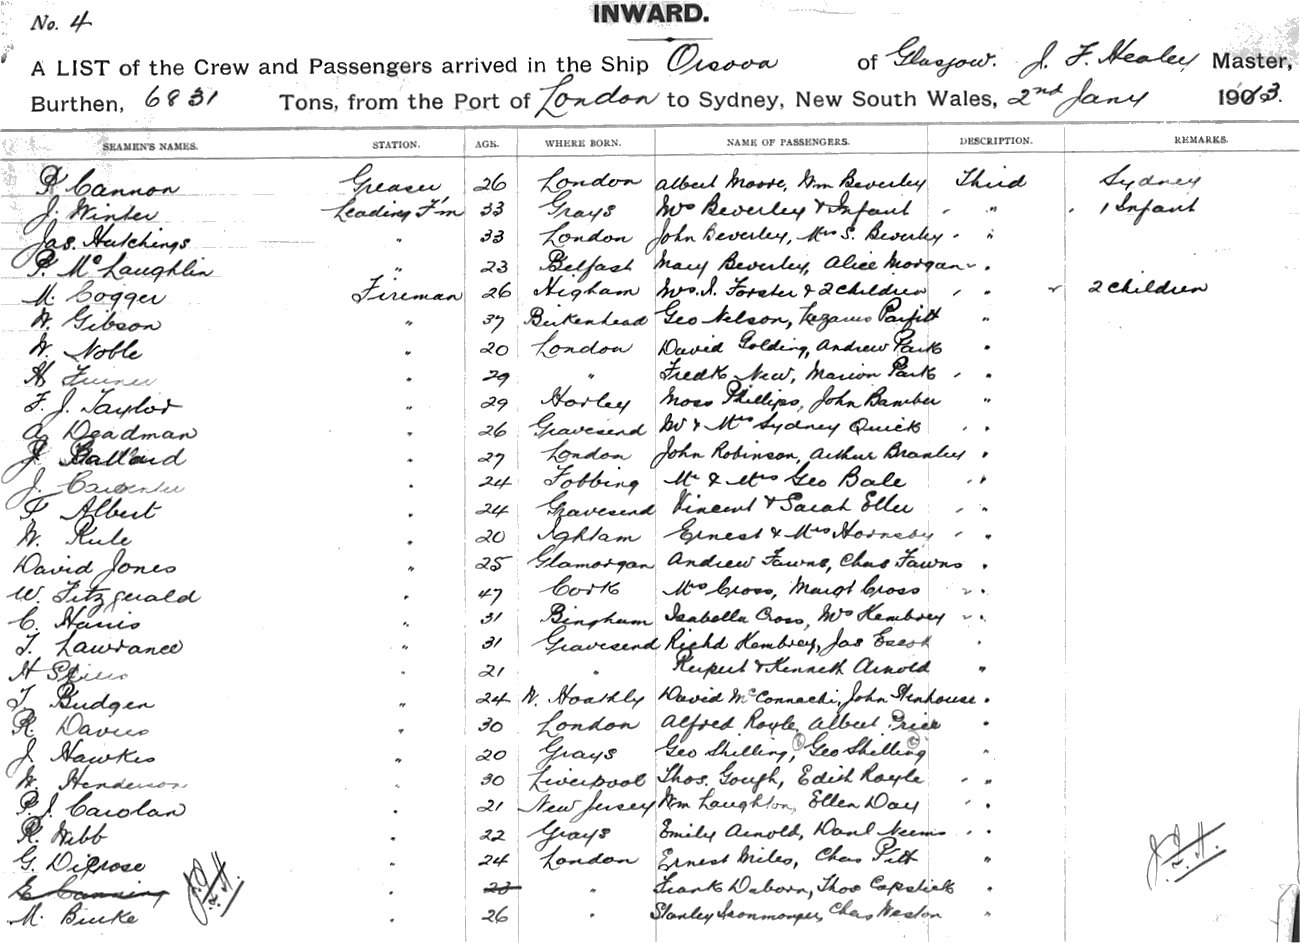 No. 4
INWARD.
A LIST of the Crew and Passengers arrived in the Ship Orsova of Glasgow. J. F. Healey, Master,
Burthen, 6831 Tons, from the Port of London to Sydney, New South Wales, 2nd Jany 1903.
SEAMEN'S NAMES. STATION. AGE. WHERE BORN. NAME OF PASSENGERS. DESCRIPTION. REMARKS.
Cannon Greaser 26 London Albert Moore, Wm Beverley Third Sydney
J. Winter Leading F'm 33 Grays Mrs Beverley & Infant " 1 Infant
Jas. Hutchings " 33 London John Beverley, Mrs S. Beverley "
P. McLaughlin " 23 Belfast Mary Beverley, Alice Morgan "
M. Cogger Fireman 26 Higham Mrs. Forster & 2 children " 2 children
W. Gibson " 37 Birkenhead Geo Nelson, Lazarus Parfitt "
W. Noble " 20 London David Golding, Andrew Park "
H. " 29 " Fredk New, Marion Park "
F. J. Taylor " 29 Horley Moss Phillips, John Bamber "
G. Deadman " 26 Gravesend Mr & Mrs Sydney Quick "
J. Ballard " 27 London John Robinson, Arthur Bramley "
J. Carpenter " 24 Fobbing Mr & Mrs Geo Bale "
F. Albert " 24 Gravesend Vincent & Sarah Eller "
W. Rule " 20 Ightam Ernest & Mrs Hornsby "
David Jones " 25 Glamorgan Andrew Fawns, Chas Fawns "
W. Fitzgerald " 47 Cork Mrs Cross, Margt Cross "
C. Harris " 31 Bingham Isabella Cross, Mrs Kembrey "
T. Lawrance " 31 Gravesend Richd Kembrey, Jas Escott "
H 21 " Rupert & Kenneth Arnold "
T. Budgen " 24 W. Hoathly David McConnachi, John Stenhouse "
R. Davies " 30 London Alfred Royle, Albert Price "
J. Hawkes " 20 Grays Geo Shilling, Geo Shilling "
W. Henderson " 30 Liverpool Thos. Gough, Edith Royle "
P. J. Carolan " 21 New Jersey Wm Laughton, Ellen Day "
R. Webb " 22 Grays Emily Arnold, Danl Neems "
G. Diprose " 24 London Ernest Miles, Chas Pitt "
E Canning 23 " Frank Daborn, Thos Capstick "
M. Burke " 26 " Stanley Ironmonger, Chas Weston "